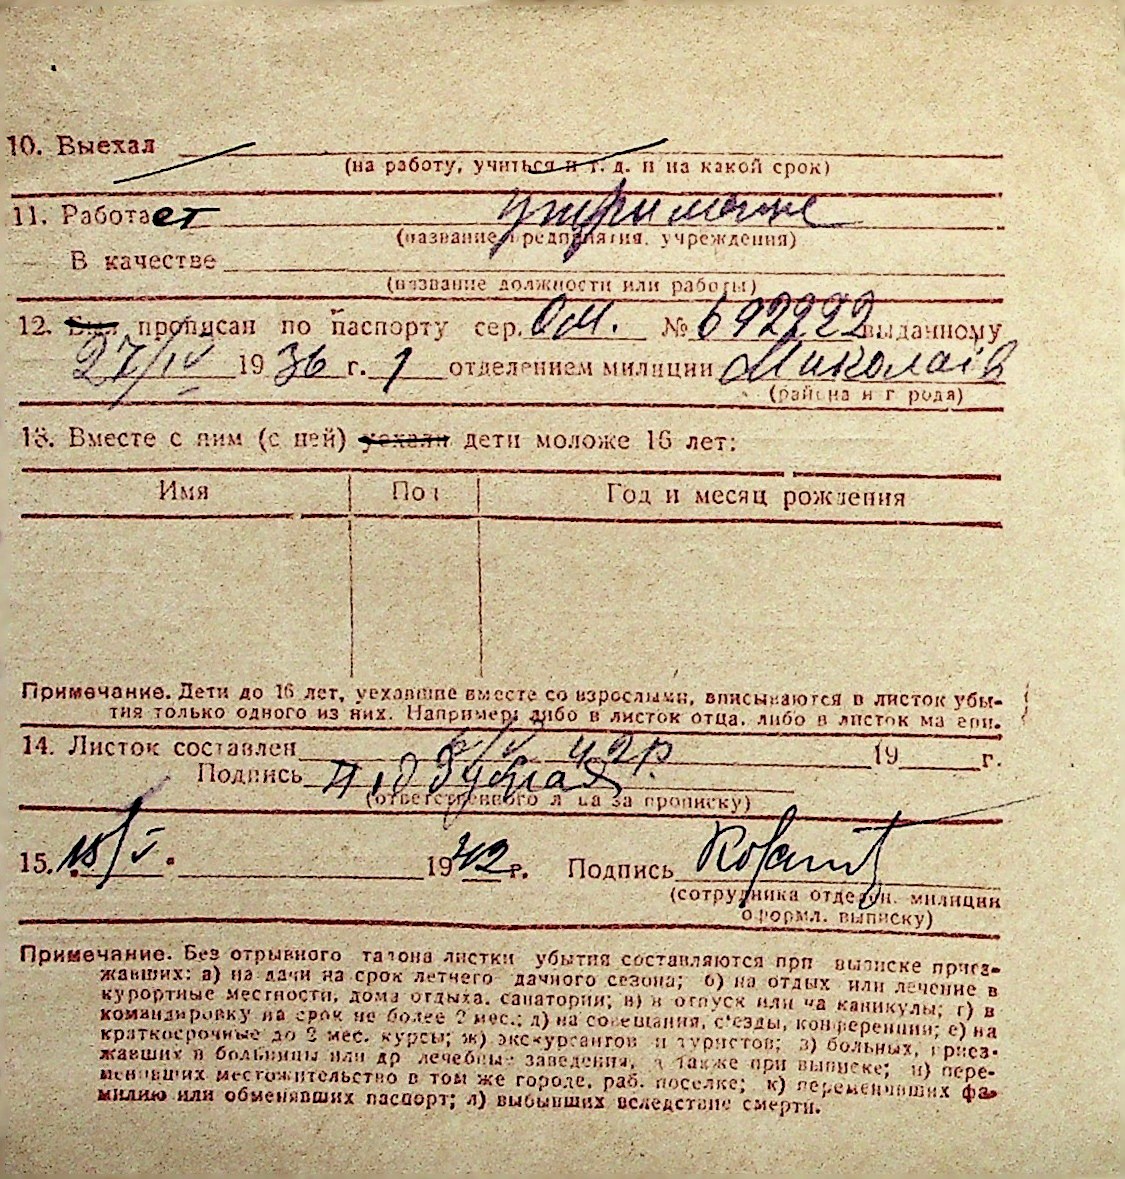 10. Выехал
(на работу, учиться и т. д. и на какой срок)
11. Работает утриманце
(название предприятия, учреждения)
В качестве
(название должности или работы)
12. Был прописан по паспорту сер. ОМ. № 692922 выданному
27/IV 1936 г. 1 отделением милиции Миколаїв
(района и города)
13. Вместе с ним (с ней) уехали дети моложе 16 лет:
Имя Пол Год и месяц рождения
Примечание. Дети до 16 лет, уехавшие вместе со взрослыми, вписываются в листок убы-
тия только одного из них. Например: либо в листок отца, либо в листок матери.
14. Листок составлен 6/V 42р. 19 г.
Подпись
(ответственного лица за прописку)
15. 15/V. 1942 г. Подпись
(сотрудника отделен. милиции
оформл. выписку)
Примечание. Без отрывного талона листки убытия составляются при выписке приез-
жавших: а) на дачи на срок летнего дачного сезона; б) на отдых или лечение в
курортные местности, дома отдыха, санатории; в) в отпуск или на каникулы; г) в
командировку на срок не более 2 мес.; д) на совещания, с'езды, конференции; е) на
краткосрочные до 2 мес. курсы; ж) экскурсантов и туристов; з) больных, приез-
жавших в больницы или др лечебные заведения, а также при выписке; и) пере-
менивших местожительство в том же городе, раб. поселке; к) переменивших фа-
милию или обменявших паспорт; л) выбывших вследствие смерти.